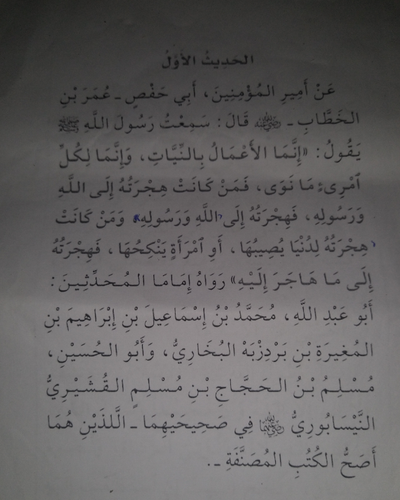 الحَدِيثُ الأَوَّلُ
عَنْ أَمِيرِ المُؤْمِنِينَ، أَبِي حَفْصٍ ـ عُمَرَ بْنِ
الخَطَّابِ ـ رضي الله عنه قَالَ: سَمِعْتُ رَسُولَ اللَّهِ ﷺ
يَقُولُ: «إِنَّمَا الأَعْمَالُ بِالنِّيَّاتِ، وَإِنَّمَا لِكُلِّ
ٱمْرِىءٍ مَا نَوَى، فَمَنْ كَانَتْ هِجْرَتُهُ إِلَى اللَّهِ
وَرَسُولِهِ، فَهِجْرَتُهُ إِلَى اللَّهِ وَرَسُولِهِ، وَمَنْ كَانَتْ
هِجْرَتُهُ لِدُنْيَا يُصِيبُهَا، أَوِ ٱمْرَأَةٍ يَنْكِحُهَا، فَهِجْرَتُهُ
إِلَى مَا هَاجَرَ إِلَيْهِ» رَوَاهُ إِمَامَا المُحَدِّثِينَ:
أَبُو عَبْدِ اللَّهِ، مُحَمَّدُ بْنُ إِسْمَاعِيلَ بْنِ إِبْرَاهِيمَ بْنِ
المُغِيرَةِ بْنِ بَرْدِزْبَهْ البُخَارِيُّ، وَأَبُو الحُسَيْنِ،
مُسْلِمُ بْنُ الحَجَّاجِ بْنِ مُسْلِمٍ القُشَيْرِيُّ
النَّيْسَابُورِيُّ فِي صَحِيحَيْهِمَا ـ اللَّذَيْنِ هُمَا
أَصَحُّ الكُتُبِ المُصَنَّفَةِ ـ.